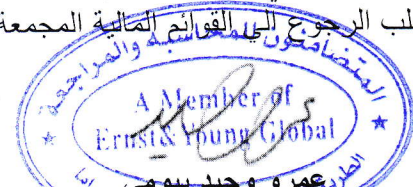 لب الرجوع إلي القوائم المالية المجمعة
المتضامنون للمحاسبة والمراجعة
A Member of
Ernst & Young Global
عمرو وحيد بيومي